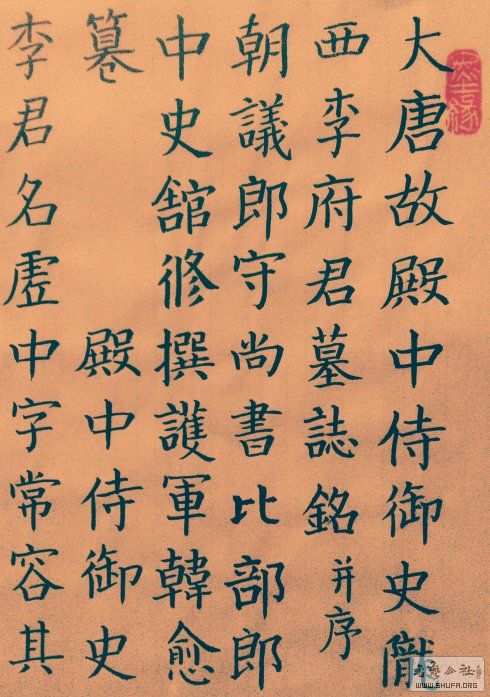 大唐故殿中侍御史隴
西李府君墓誌銘并序
朝議郎守尚書比部郎
中史舘修撰護軍韓愈
殿中侍御史
李君名虛中字常容其
WWW.SHUFA.ORG